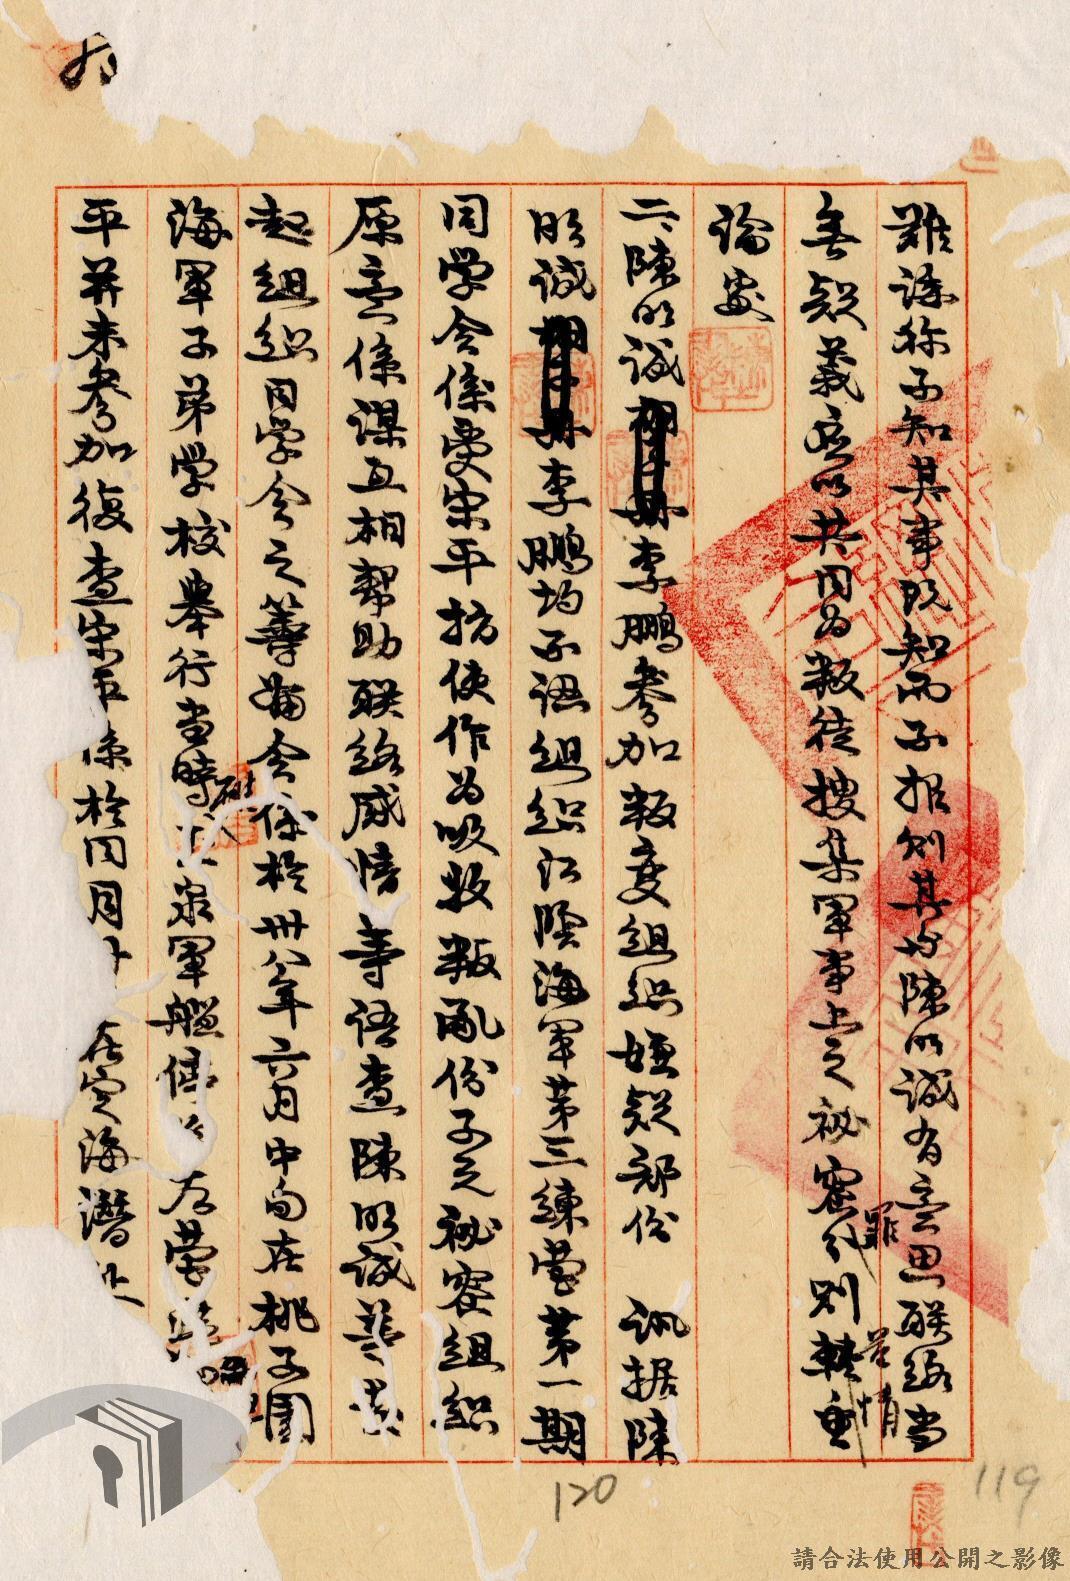 難諉稱不知其事既知而不报則其与陳明誠有意思联絡当
無疑義應以共同为叛徒搜集軍事上之秘密罪刑輕重
罪 若情
論處
二、陳明誠李鵬參加叛变組織嫌疑部份 訊据陳
明誠李鵬均不諱組織江陰海軍第三練营第一期
同学会係受宋平指使作为吸收叛亂份子之秘密組織
原意係谋互相幫助联絡感情等語查陳明誠等
起組織同学会之籌備会係於卅八年六月中旬在桃子園
海軍子弟学校舉行当時泉軍艦停左营
平并未參加復查宋平係於同月在定海潛
120
119
請合法使用公開之影像